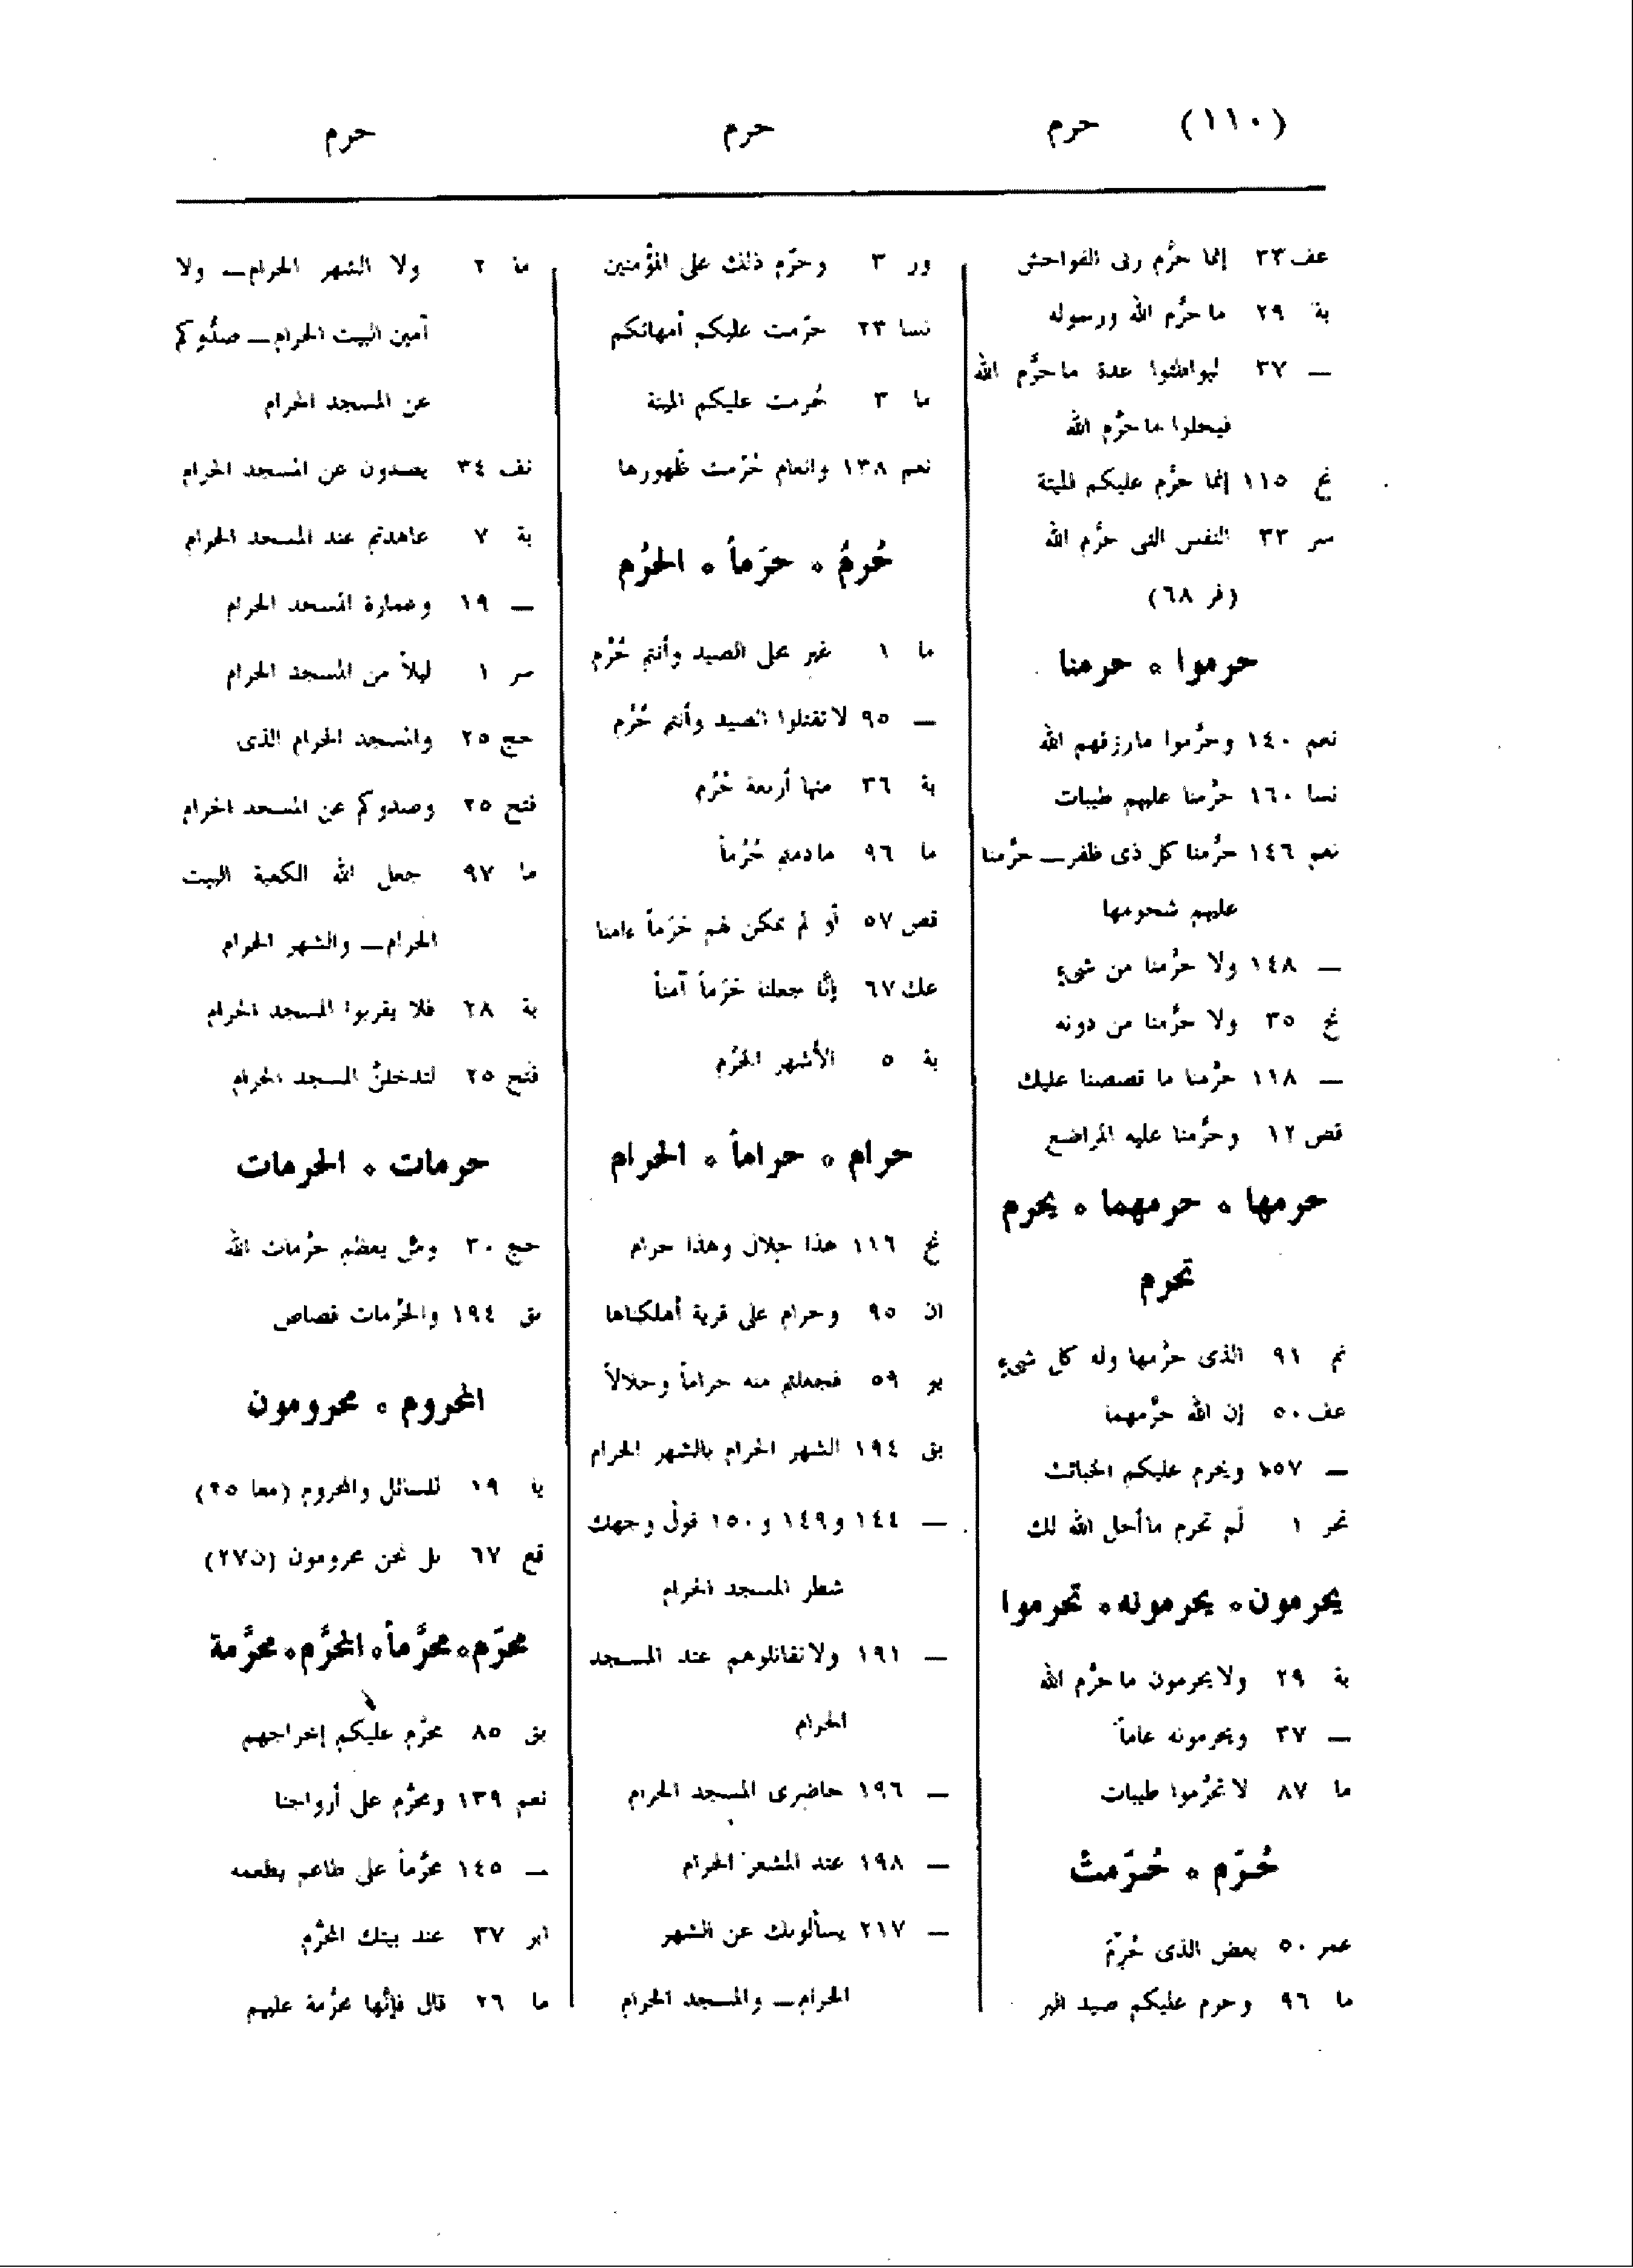 (١١٠) حرم
حرم
حرم
عف ٣٣ إنما حرَّم ربى الفواحش
بة ٢٩ ما حرَّم الله ورسوله
— ٣٧ ليواطئوا عدة ما حرَّم الله
فيحلوا ما حرَّم الله
نح ١١٥ إنما حرَّم عليكم الميتة
سر ٣٣ النفس التى حرَّم الله
(فر ٦٨)
حرموا ٥ حرمنا
نعم ١٤٠ وحرَّموا مارزقهم الله
نسا ١٦٠ حرَّمنا عليهم طيبات
نعم ١٤٦ حرَّمنا كل ذى ظفر — حرَّمنا
عليهم شحومها
— ١٤٨ ولا حرَّمنا من شىء
نح ٣٥ ولا حرَّمنا من دونه
— ١١٨ حرَّمنا ما قصصنا عليك
قص ١٢ وحرَّمنا عليه المراضع
حرمها ٥ حرمهما ٥ يحرم
تحرم
نم ٩١ الذى حرَّمها وله كل شىء
عف ٥٠ إن الله حرَّمهما
— ١٥٧ ويحرم عليكم الخبائث
تحر ١ لم تحرم ما أحل الله لك
يحرمون ٥ يحرمونه ٥ تحرموا
بة ٢٩ ولا يحرمون ما حرَّم الله
— ٣٧ ويحرمونه عاماً
ما ٨٧ لا تحرَّموا طيبات
حُرّم ٥ حُرّمت
عمر ٥٠ بعض الذى حُرّم
ما ٩٦ وحرم عليكم صيد البر
ور ٣ وحرّم ذلك على المؤمنين
نسا ٢٣ حرّمت عليكم أمهاتكم
ما ٣ حُرمت عليكم الميتة
نعم ١٣٨ وانعام حُرّمت ظهورها
حُرمٌ ٥ حرَماً ٥ الحُرُم
ما ١ غير محلى الصيد وأنتم حُرُم
— ٩٥ لا تقتلوا الصيد وأنتم حُرُم
بة ٣٦ منها أربعة حُرُم
ما ٩٦ مادمتم حُرُماً
قص ٥٧ أو لم نمكن لهم حَرَماً ءامنا
عك ٦٧ إنَّا جعلنا حَرَماً آمناً
بة ٥ الأشهر الحُرُم
حرام ٥ حراماً ٥ الحرام
نح ١١٦ هذا حلال وهذا حرام
ان ٩٥ وحرام على قرية أهلكناها
يو ٥٩ فجعلتم منه حراماً وحلالاً
بق ١٩٤ الشهر الحرام بالشهر الحرام
— ١٤٤ و١٤٩ و١٥٠ فولّ وجهك
شطر المسجد الحرام
— ١٩١ ولا تقاتلوهم عند المسجد
الحرام
— ١٩٦ حاضرى المسجد الحرام
— ١٩٨ عند المشعر الحرام
— ٢١٧ يسألونك عن الشهر
الحرام — والمسجد الحرام
ما ٢ ولا الشهر الحرام — ولا
آمين البيت الحرام — صدُّوكم
عن المسجد الحرام
نف ٣٤ يصدون عن المسجد الحرام
بة ٧ عاهدتم عند المسجد الحرام
— ١٩ وعمارة المسجد الحرام
سر ١ ليلاً من المسجد الحرام
حج ٢٥ والمسجد الحرام الذى
فتح ٢٥ وصدوكم عن المسجد الحرام
ما ٩٧ جعل الله الكعبة البيت
الحرام — والشهر الحرام
بة ٢٨ فلا يقربوا المسجد الحرام
فتح ٢٥ لتدخلنَّ المسجد الحرام
حرمات ٥ الحرمات
حج ٣٠ ومن يعظم حرُمات الله
بق ١٩٤ والحرُمات قصاص
المحروم ٥ محرومون
يا ١٩ للسائل والمحروم (معا ٢٥)
قع ٦٧ بل نحن محرومون (ن٢٧)
محرّم ٥ محرَّماً ٥ المحرَّم ٥ محرَّمة
بق ٨٥ محرَّم عليكم إخراجهم
نعم ١٣٩ ومحرَّم على أزواجنا
— ١٤٥ محرَّماً على طاعم يطعمه
ابر ٣٧ عند بيتك المحرَّم
ما ٢٦ قال فإنَّها محرَّمة عليهم